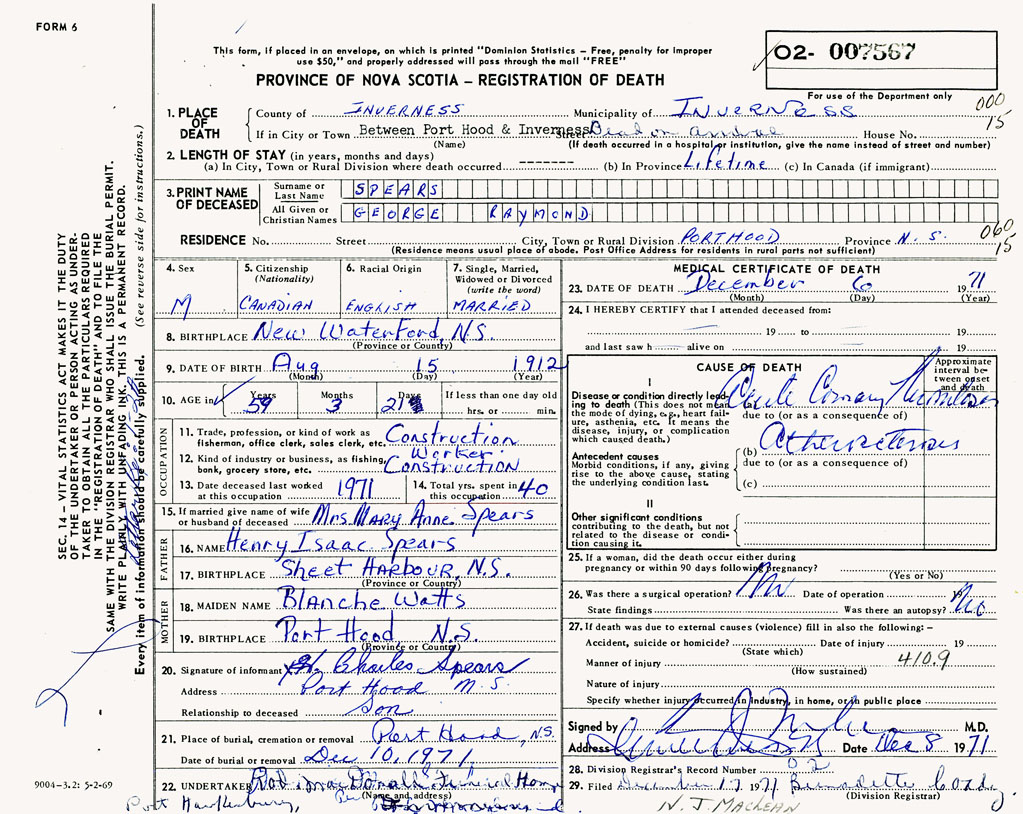 FORM 6
This form, if placed in an envelope, on which is printed "Dominion Statistics – Free, penalty for improper
use $50," and properly addressed will pass through the mail "FREE"
PROVINCE OF NOVA SCOTIA – REGISTRATION OF DEATH
O2- 007567
For use of the Department only
000
15
1. PLACE OF DEATH
County of INVERNESS Municipality of INVERNESS
If in City or Town Between Port Hood & Inverness Street Dead on arrival House No.
(Name) (If death occurred in a hospital or institution, give the name instead of street and number)
2. LENGTH OF STAY (in years, months and days)
(a) In City, Town or Rural Division where death occurred ------- (b) In Province Lifetime (c) In Canada (if immigrant)
3. PRINT NAME OF DECEASED
Surname or Last Name SPEARS
All Given or Christian Names GEORGE RAYMOND
060
15
RESIDENCE No. Street City, Town or Rural Division PORT HOOD Province N.S.
(Residence means usual place of abode. Post Office Address for residents in rural parts not sufficient)
4. Sex M
5. Citizenship (Nationality) CANADIAN
6. Racial Origin ENGLISH
7. Single, Married, Widowed or Divorced (write the word) MARRIED
8. BIRTHPLACE New Waterford, N.S.
(Province or Country)
9. DATE OF BIRTH Aug 15 1912
(Month) (Day) (Year)
10. AGE in Years 59 Months 3 Days 21 If less than one day hrs. or min.
OCCUPATION
11. Trade, profession, or kind of work as fisherman, office clerk, sales clerk, etc. Construction Worker
12. Kind of industry or business, as fishing, bank, grocery store, etc. Construction
13. Date deceased last worked at this occupation 1971
14. Total yrs. spent in this occupation 40
15. If married give name of wife or husband of deceased Mrs. Mary Anne Spears
FATHER
16. NAME Henry Isaac Spears
17. BIRTHPLACE Sheet Harbour, N.S.
(Province or Country)
MOTHER
18. MAIDEN NAME Blanche Watts
19. BIRTHPLACE Port Hood N.S.
(Province or Country)
20. Signature of informant Charles Spears
Address Port Hood N.S.
Relationship to deceased Son
21. Place of burial, cremation or removal Port Hood, N.S.
Date of burial or removal Dec 10, 1971
22. UNDERTAKER Funeral Home
(Name and address)
Port Hawkesbury,
MEDICAL CERTIFICATE OF DEATH
23. DATE OF DEATH December 6 1971
(Month) (Day) (Year)
24. I HEREBY CERTIFY that I attended deceased from:
19 to 19
and last saw h alive on 19
CAUSE OF DEATH
Approximate interval between onset and death
I
Disease or condition directly leading to death (This does not mean the mode of dying, e.g., heart failure, asthenia, etc. It means the disease, injury, or complication which caused death.)
Acute Coronary Thrombosis
due to (or as a consequence of)
Antecedent causes
Morbid conditions, if any, giving rise to the above cause, stating the underlying condition last.
(b)
due to (or as a consequence of)
(c)
II
Other significant conditions contributing to the death, but not related to the disease or condition causing it.
25. If a woman, did the death occur either during pregnancy or within 90 days following pregnancy?
(Yes or No)
26. Was there a surgical operation? No Date of operation 19
State findings Was there an autopsy? No
27. If death was due to external causes (violence) fill in also the following: –
Accident, suicide or homicide? Date of injury 19
(State which)
Manner of injury 410.9
(How sustained)
Nature of injury
Specify whether injury occurred in industry, in home, or in public place
Signed by M.D.
Address Date Dec 8 1971
28. Division Registrar's Record Number 02
29. Filed December 17 1971 Bernadette
(Division Registrar)
N. J. MacLean
SEC. 14 – VITAL STATISTICS ACT MAKES IT THE DUTY
OF THE UNDERTAKER OR PERSON ACTING AS UNDER-
TAKER TO OBTAIN ALL THE PARTICULARS REQUIRED
IN THE "REGISTRATION OF DEATH" AND TO FILE THE
SAME WITH THE DIVISION REGISTRAR WHO SHALL ISSUE THE BURIAL PERMIT.
WRITE PLAINLY WITH UNFADING INK, THIS IS A PERMANENT RECORD.
Every item of information should be carefully supplied. (See reverse side for instructions.)
9004-3.2: 5-2-69